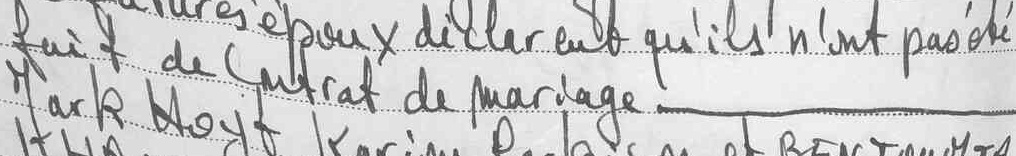 époux déclarent qu'ils n'ont pas été
fait de Contrat de mariage
Mark Hoyt Karim et